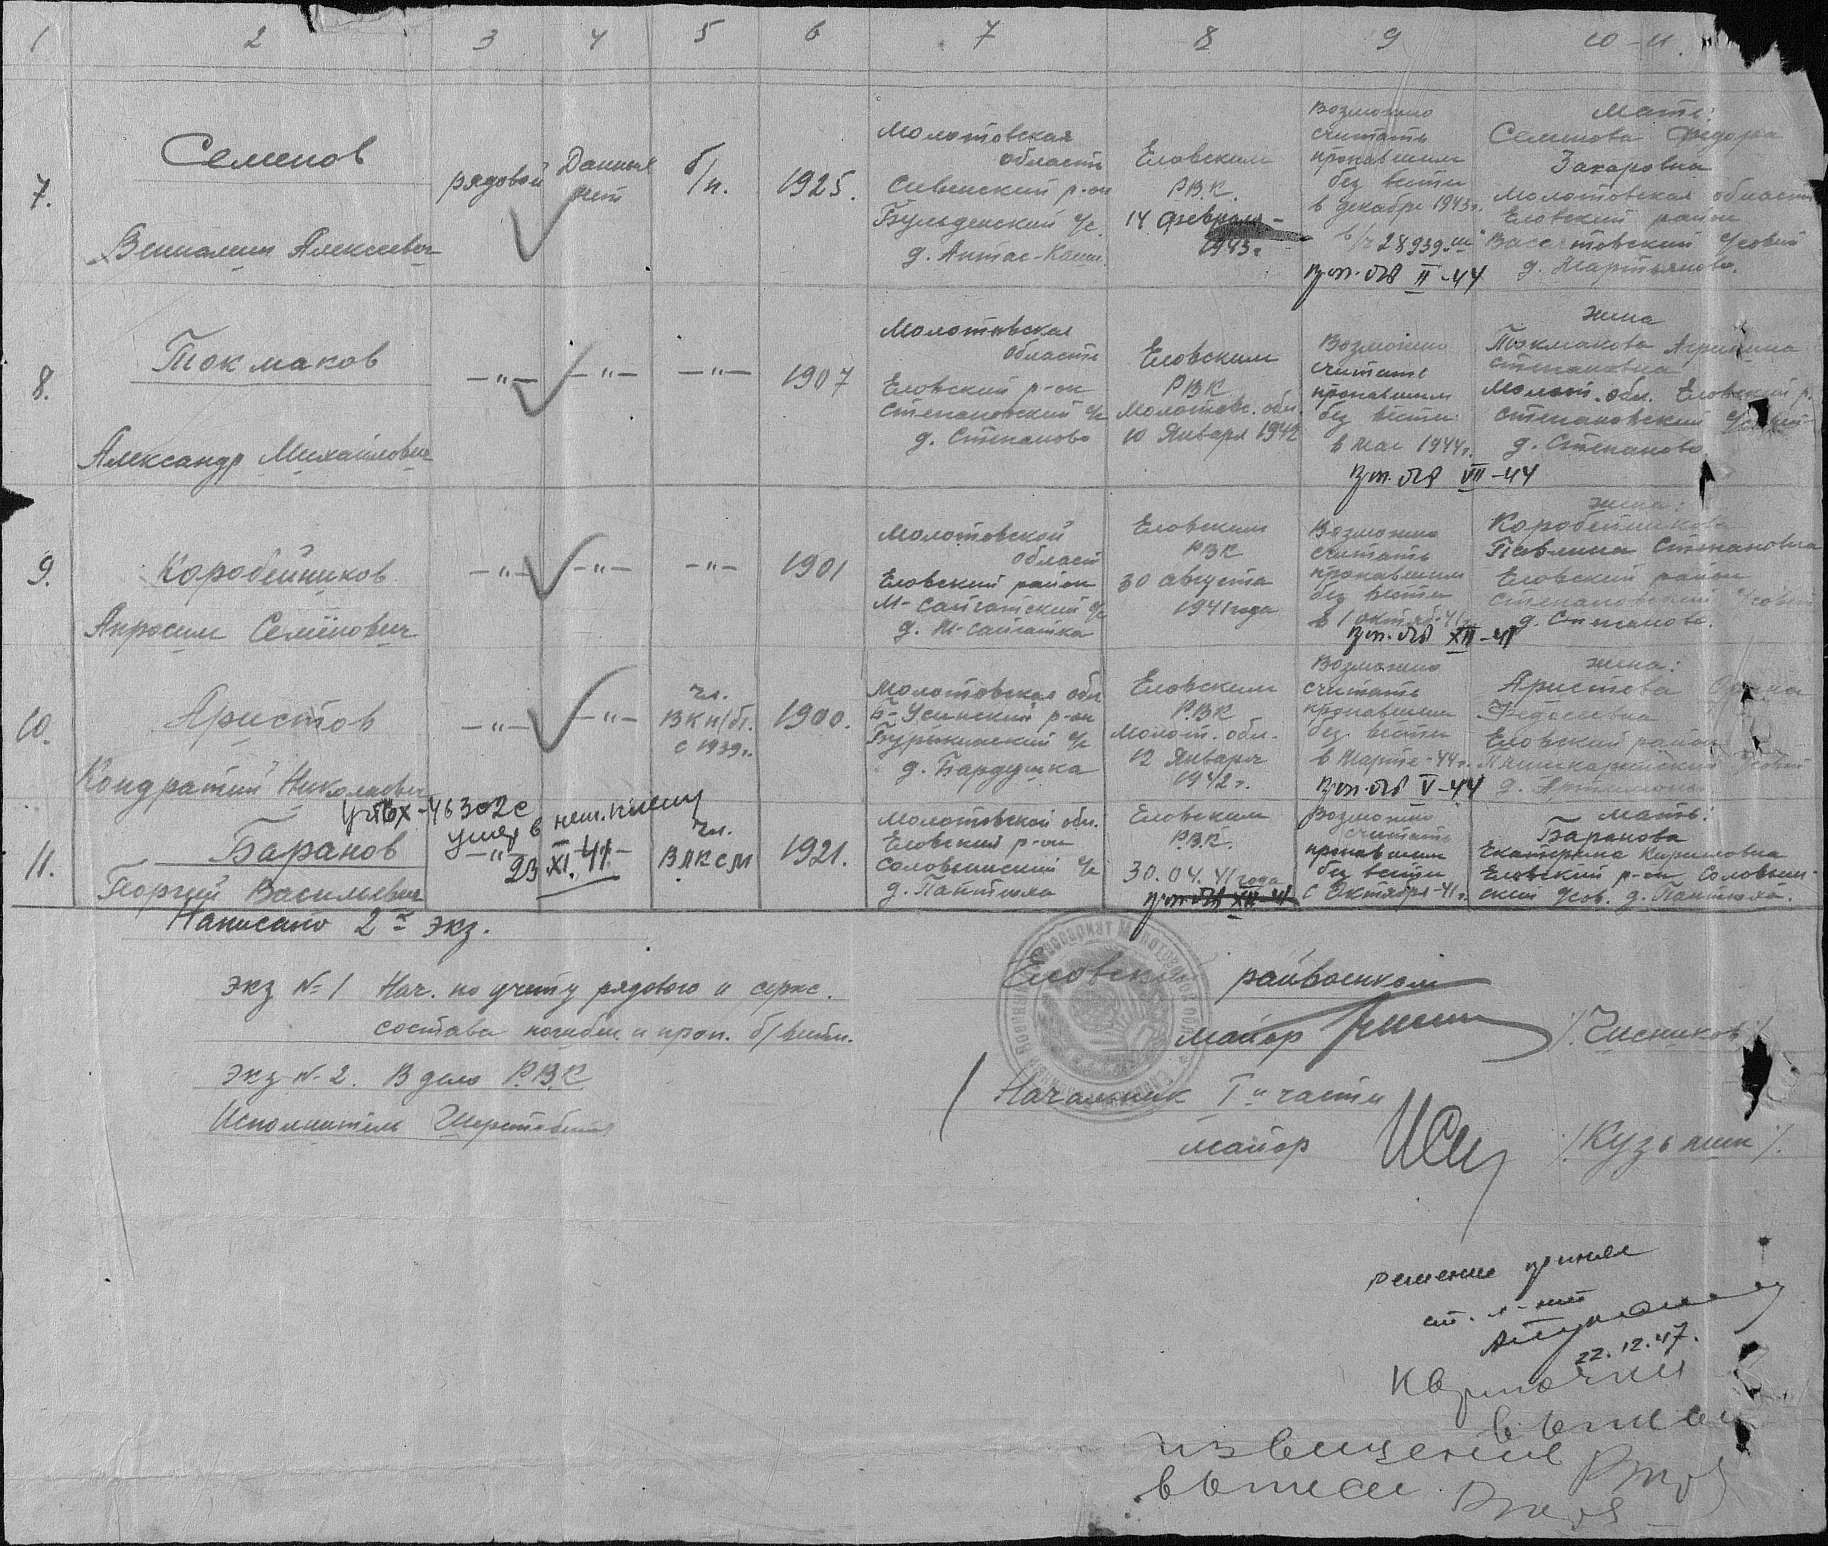 1 2 3 4 5 6 7 8 9 10-11.
7.
Семенов
Вениамин Алексеевич
рядовой
Данных
нет
б/п.
1925.
Молотовская
область
Сивенский р-он
Бульденский с/с.
Еловским
РВК.
14 февраля
1943г
Возможно
считать
пропавшим
без вести
в декабре 1943г.
в/ч 28939
II-44
Мать:
Семенова Федора
Захаровна
Молотовская область
Еловский район
с/совет
д. Мартьяново.
8.
Токмаков
Александр Михайлович
-"- -"- -"-
1907
Молотовская
область
Еловский р-он
Степановский с/с
д. Степаново
Еловским
РВК
Молотовс. обл.
10 Января 1942
Возможно
считать
пропавшим
без вести
в мае 1944г.
VII-44
жена
Токмакова Агрипина
Степановна
Молот. обл. Еловский р.
Степановский с/совет
д. Степаново
9.
Коробейников
Апросим Семёнович
-"- -"- -"-
1901
Молотовской
област
Еловский район
М-Сайгатский с/с
д. М-Сайгатка
Еловским
РВК
30 августа
1941 года
Возможно
считать
пропавшим
без вести
в октяб-41г.
XII-41
жена:
Коробейникова
Павлина Степановна
Еловский район
Степановский с/совет
д. Степаново.
10.
Аристов
Кондратий Николаевич
-"- -"-
чл.
ВКП/б/.
с 1939г.
1900.
Молотовская обл
Б-Усинский р-он
с/с
д. Бардушка
Еловским
РВК
Молот. обл.
12 Января
1942г.
Возможно
считать
пропавшим
без вести
в Марте-44г.
V-44
жена:
Аристова
Федосеевна
Еловский район
с/совет
11.
Баранов
Георгий Васильевич
46302с
умер в нем. плену
23.XI.41.
чл.
ВЛКСМ
1921.
Молотовской обл.
Еловский р-он
Соловьинский с/с
д. Пантюха
Еловским
РВК.
30.04.41 года
XII-41
Возможно
считать
пропавшим
без вести
с Октября-41г.
мать:
Баранова
Екатерина Кириловна
Еловский р-он Соловьин-
ский с/сов. д. Пантюха.
Написано 2 экз.
Экз №1 Нач. по учету рядового и серж.
состава погибш. и проп. б/вести.
Экз №2. В дело РВК
Исполнитель
Еловский райвоенком
майор /Чисников/
Начальник I й части
майор /Кузьмин/.
Решение принял
ст. л-нт
22.12.47.
Карточки
выписал
извещение
выписал